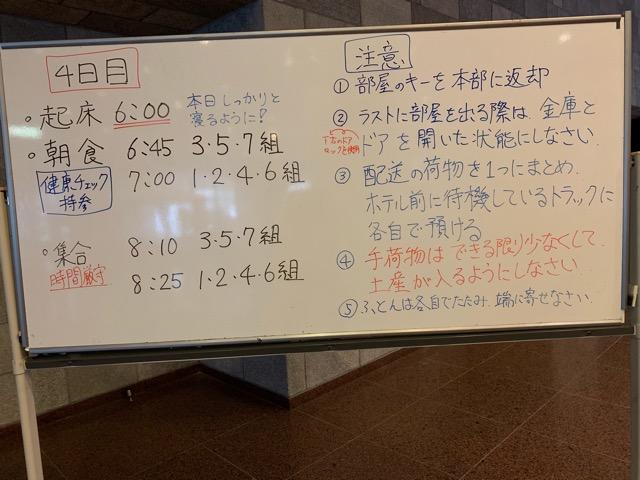 4日目
。起床 6:00
本日しっかりと
寝るように?
。朝食 6:45 3・5・7組
健康チェック
持参
7:00 1・2・4・6組
。集合 8:10 3・5・7組
時間厳守
8:25 1・2・4・6組
注意
① 部屋のキーを本部に返却
② ラストに部屋を出る際は、金庫と
ドアを開いた状態にしなさい.
ロックを使用
③ 配送の荷物を1つにまとめ.
ホテル前に待機しているトラックに
各自で預ける
④ 手荷物はできる限り少なくして.
土産が入るようにしなさい.
⑤ ふとんは各自でたたみ、端に寄せなさい.